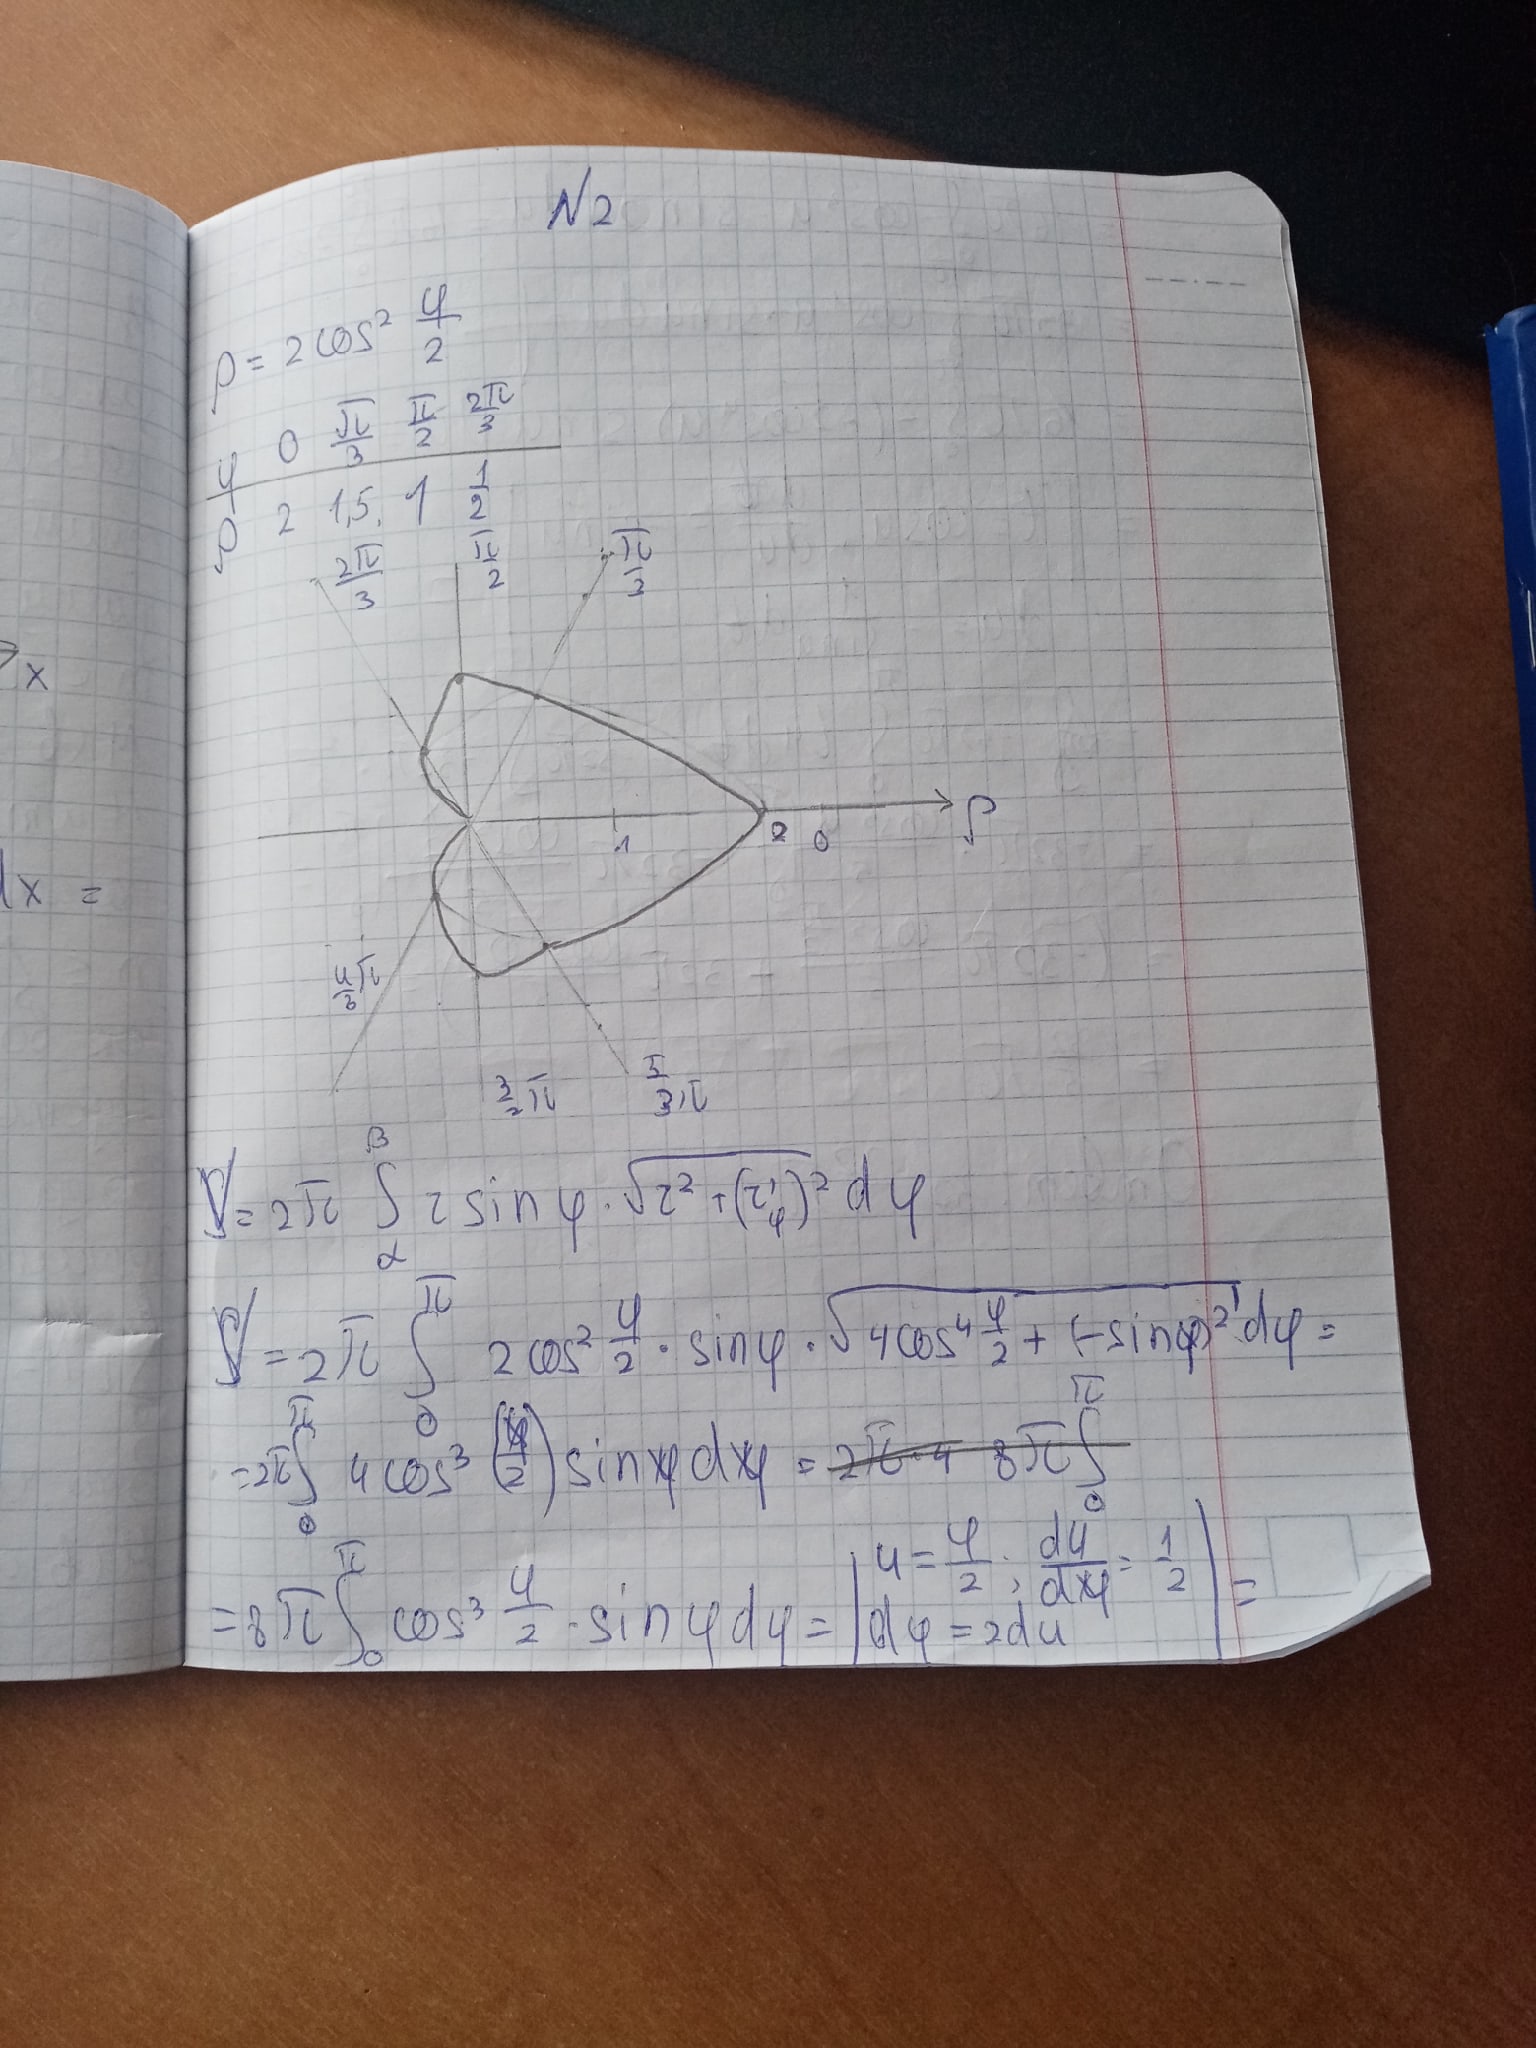 N2
ρ = 2 cos² φ/2
φ 0 π/3 π/2 2π/3
ρ 2 1,5 1 1/2
2π/3 π/2 π/3
x
1 2 0 ρ
dx =
4/3 π
3/2 π 5/3 π
V = 2π ∫_α^β r sin φ · √(r² + (r'_φ)²) dφ
V = 2π ∫_0^π 2 cos² φ/2 · sin φ · √(4 cos⁴ φ/2 + (-sin φ)²) dφ =
= 2π ∫_0^π 4 cos³ (φ/2) sin φ dφ = 2π·4 8π ∫_0^π
= 8π ∫_0^π cos³ φ/2 · sin φ dφ = | u = φ/2 ; du/dφ = 1/2
dφ = 2du | =